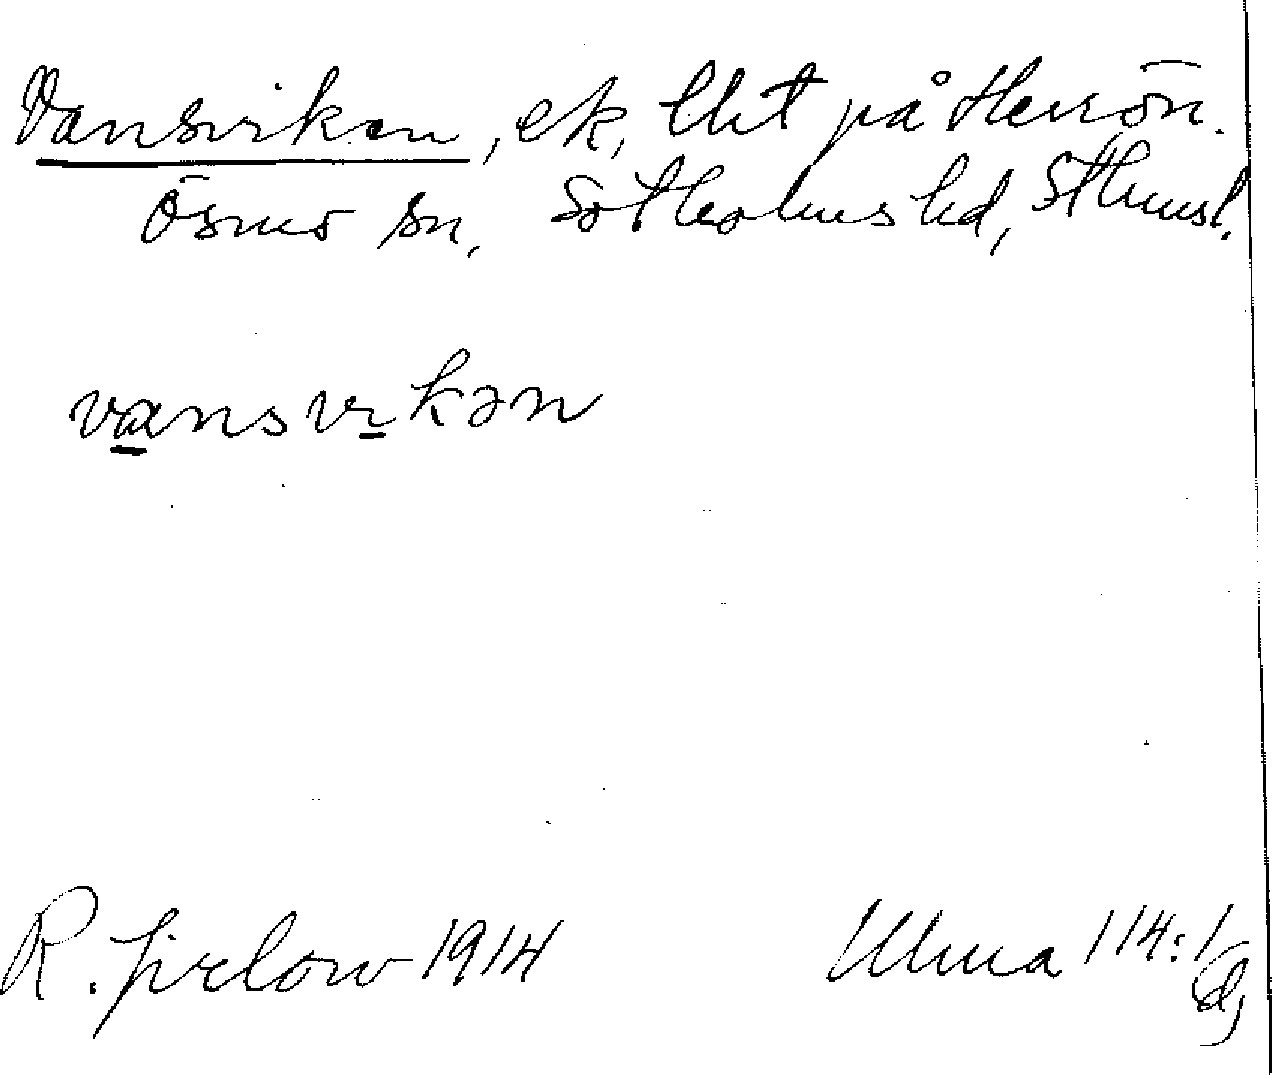 Vansviken, ek, tht på Herrön.
Ösmo sn, Sotholms hd, Sthmsl.
vansvikən
R. Jirlow 1914
Ulma 114:1